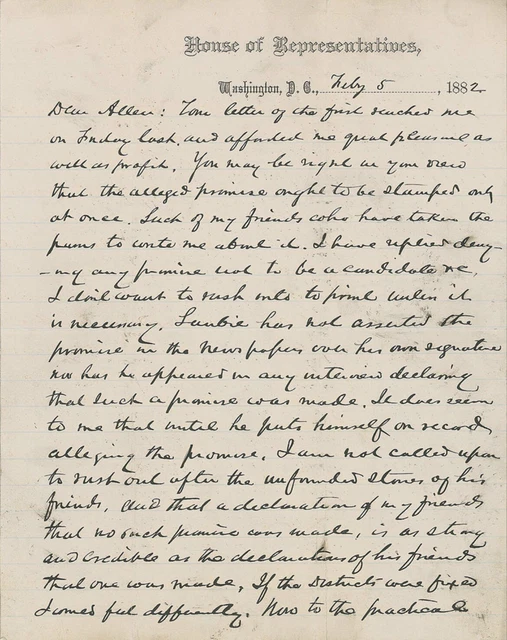 House of Representatives,
Washington, D. C., Feby 5, 1882
Dear Allen: Your letter of the first reached me
on Friday last, and afforded me great pleasure as
well as profit. You may be right in your view
that the alleged promise ought to be stamped out
at once. Such of my friends who have taken the
pains to write me about it. I have replied deny-
-ing any promise not to be a candidate &c.
I don't want to rush into to print unless it
is necessary. has not asserted the
promise in the newspapers over his own signature
nor has he appeared in any interview declaring
that such a promise was made. It does seem
to me that until he puts himself on record
alleging the promise, I am not called upon
to rush out after the unfounded stories of his
friends, and that a declaration of my friends
that no such promise was made, is as strong
and credible as the declarations of his friends
that one was made. If the Districts were fixed
I would feel differently. Now to the practical